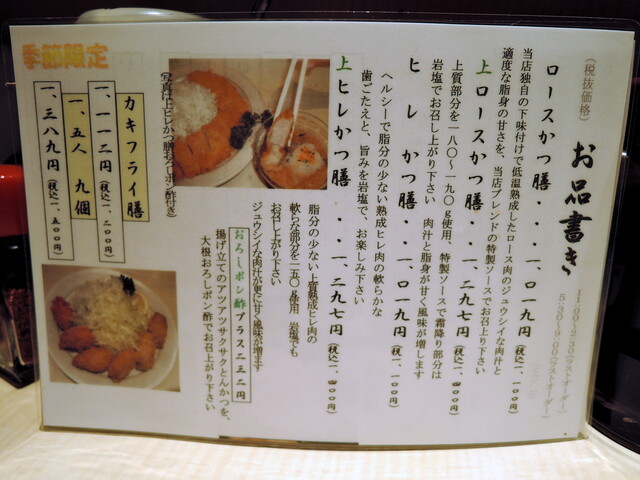 お品書き
(税抜価格)
11:00~2:30(ラストオーダー)
5:30~9:00(ラストオーダー)
ロースかつ膳・・・一、〇一九円(税込一、一〇〇円)
当店独自の下味付けで低温熟成したロース肉のジュウシイな肉汁と
適度な脂身の甘さを、当店ブレンドの特製ソースでお召上り下さい
上ロースかつ膳・・・一、二九七円(税込一、四〇〇円)
上質部分を一八〇~一九〇g使用、特製ソースで霜降り部分は
岩塩でお召し上がり下さい 肉汁と脂身が甘く風味が増します
ヒレかつ膳・・・一、〇一九円(税込一、一〇〇円)
ヘルシーで脂分の少ない熟成ヒレ肉の軟らかな
歯ごたえと、旨みを岩塩で、お楽しみ下さい
上ヒレかつ膳・・・一、二九七円(税込一、四〇〇円)
脂分の少ない上質熟成ヒレ肉の
軟らな部分を一五〇g使用 岩塩でも
お召し上がり下さい
ジュウシイな肉汁が更に甘く風味が増ます
おろしポン酢プラス二三二円
揚げ立てのアツアツサクサクとんかつを、
大根おろしポン酢でお召上がり下さい
写真は上ヒレかつ膳おろしポン酢付き)
季節限定
カキフライ膳
一、一一二円(税込一、二〇〇円)
一、五人 九個
一、三八九円(税込一、五〇〇円)